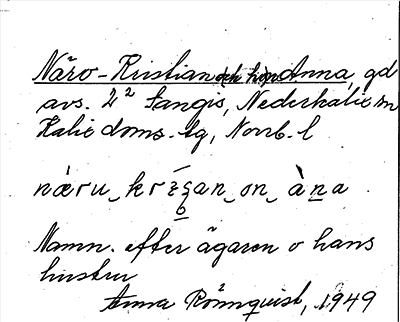 Näro-Kristian och hans Anna, gd
avs. 2² Sangis, Nederkalix sn
Kalix doms. tg, Norrb. l
Namn. efter ägaren o hans
hustru
Anna Rönnquist, 1949